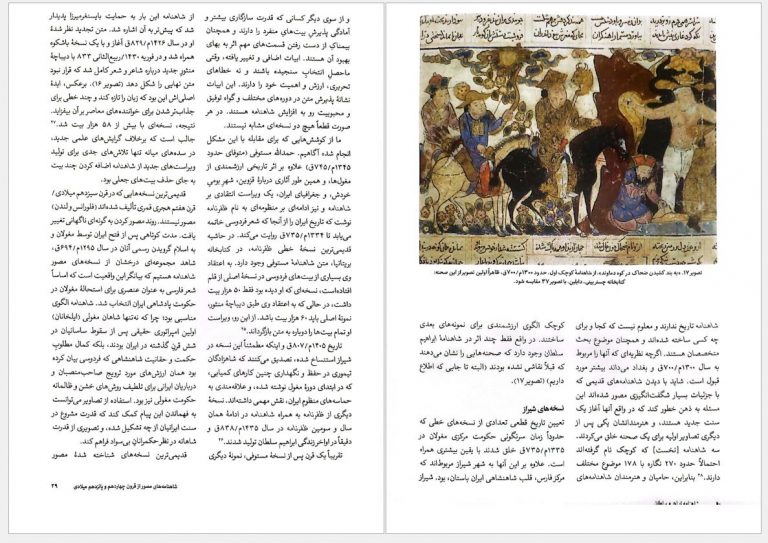 و از سوی دیگر کسانی که قدرت سازگاری بیشتر و
آمادگی پذیرش بیت‌های منفرد را دارند و همچنان
بیمناک از دست رفتن قسمت‌های مهم اثر به بهای
بهبود آن هستند. ابیات اضافی و تغییر یافته، وقتی
ماحصل انتخاب سنجیده باشند و نه خطاهای
تحریری، ارزش و اهمیت خود را دارند. این ابیات
نشانهٔ پذیرش متن در دوره‌های مختلف و گواه توفیق
و محبوبیت رو به افزایش شاهنامه هستند. در هر
صورت قطعاً هیچ دو نسخه‌ای مشابه نیستند.
ما از کوشش‌هایی که برای مقابله با این مشکل
انجام شده آگاهیم. حمدالله مستوفی (متوفای حدود
۱۳۴۵م/۷۴۵ق) علاوه بر اثر تاریخی ارزشمندی از
مغول‌ها، و همین طور آثاری دربارهٔ قزوین، شهر بومی
خودش، و جغرافیای ایران، یک ویراست انتقادی بر
شاهنامه و نیز ادامه‌ای بر منظومه‌ای به نام ظفرنامه
نوشت که تاریخ ایران را از آنجا که شعر فردوسی خاتمه
می‌یابد تا ۱۳۳۴م/۷۳۵ق روایت می‌کند. در حاشیه
قدیمی‌ترین نسخهٔ خطی ظفرنامه، در کتابخانه
بریتانیا، متن شاهنامهٔ مستوفی وجود دارد. به اعتقاد
وی بسیاری از بیت‌های فردوسی در نسخهٔ اصلی از قلم
افتاده‌است، نسخه‌ای که او دیده بود فقط ۵۰ هزار بیت
داشت، در حالی که به اعتقادی وی طبق دیباچهٔ منثور،
نسخهٔ اصلی باید ۶۰ هزار بیت باشد. از این رو، ویراست
او تمام بیت‌ها را دوباره به متن بازگرداند.
تاریخ ۱۴۰۵م/۸۰۷ق و اینکه مطمئناً این نسخه در
شیراز استنساخ شده، تصدیق می‌کنند که شاهزادگان
تیموری در حفظ و نگهداری چنین کارهای کمیابی،
که در ابتدای دورهٔ مغول نوشته شده، و علاقه‌مندی به
حماسه‌های منظوم ایران، نقش مهمی داشته‌اند. نسخهٔ
دیگری از ظفرنامه به همراه شاهنامه در ادامهٔ همان
سال و سومین ظفرنامه در سال ۱۴۳۵م/۸۳۸ق و
دقیقاً در اواخر زندگی ابراهیم سلطان تولید شدند.
تقریباً یک قرن پس از نسخهٔ مستوفی، نمونهٔ دیگری
از شاهنامه این بار به حمایت بایسنغرمیرزا پدیدار
شد که پیش‌تر به آن اشاره شد. متن تجدید نظر شدهٔ
او در سال ۱۴۲۶م/۸۲۹ق آغاز و با یک نسخهٔ باشکوه
همراه شد و در فوریه ۱۴۳۰/ربیع‌الثانی ۸۳۳ با دیباچهٔ
منثور جدید درباره شاعر و شعر کامل شد که قرار نبود
متن نهایی را شکل دهد (تصویر ۱۶). برعکس، ایدهٔ
اصلی‌اش این بود که زبان را تازه کند و چند خطی برای
جذاب‌تر شدن برای خواننده‌های معاصر بر آن بیفزاید.
نتیجه، نسخه‌ای با بیش از ۵۸ هزار بیت شد.
جالب است که برخلاف گرایش‌های علمی جدید،
در سده‌های میانه تنها تلاش‌های جدی برای تولید
ویراست‌های جدید از شاهنامه اضافه کردن چند بیت
به جای حذف بیت‌های جعلی بود.
قدیمی‌ترین نسخه‌هایی که در قرن سیزدهم میلادی/
قرن هفتم هجری قمری تألیف شده‌اند (فلورانس و لندن)
مصور نیستند. روند مصور کردن به گونه‌ای ناگهانی تغییر
یافت. مدت کوتاهی پس از فتح ایران توسط مغولان و
به اسلام گرویدن رسمی آنان در سال ۱۲۹۵م/۶۹۴ق،
شاهد مجموعه‌ای درخشان از نسخه‌های مصور
شاهنامه هستیم که بیانگر این واقعیت است که اساساً
شعر فارسی به عنوان عنصری برای استحالهٔ مغولان در
حکومت پادشاهی ایران انتخاب شد. شاهنامه الگوی
مناسبی بود؛ چرا که نه‌تنها شاهان مغولی (ایلخانان)
اولین امپراتوری حقیقی پس از سقوط ساسانیان در
شش قرن گذشته در ایران بودند، بلکه کمال مطلوب
حکمت و حقانیت شاهنشاهی که فردوسی بیان کرده
بود همان ارزش‌های مورد ترویج صاحب‌منصبان و
درباریان ایرانی برای تلطیف روش‌های خشن و ظالمانه
حکومت مغولی نیز بود. استفاده از تصاویر می‌توانست
به فهماندن این پیام کمک کند که قدرت مشروع در
سنت ایرانیان از چه تشکیل شده، و تصویری از قدرت
شاهانه در نظر حکمرانان بی‌سواد فراهم کند.
قدیمی‌ترین نسخه‌های شناخته شدهٔ مصور
شاهنامه‌های مصور از قرون چهاردهم و پانزدهم میلادی ۳۹
تصویر ۱۷. «به بند کشیدن ضحاک در کوه دماوند»، از شاهنامهٔ کوچک اول، حدود ۱۳۰۰م/۷۰۰ق، ظاهراً اولین تصویر از این صحنه؛
کتابخانه چستربیتی، دابلین. با تصویر ۳۷ مقایسه شود.
شاهنامه تاریخ ندارند و معلوم نیست که کجا و برای
چه کسی ساخته شده‌اند و همچنان موضوع بحث
متخصصان هستند. اگرچه نظریه‌ای که آنها را مربوط
به سال ۱۳۰۰م/۷۰۰ق و بغداد می‌داند بیشتر مورد
قبول است. شاید با دیدن شاهنامه‌های قدیمی که
با جزئیات بسیار شگفت‌انگیزی مصور شده‌اند این
مسئله به ذهن خطور کند که در واقع آنها آغاز یک
سنت جدید هستند، و هنرمندانشان یکی پس از
دیگری تصاویر اولیه برای یک صحنه خلق می‌کردند.
سه شاهنامه [نخست] که کوچک نام گرفته‌اند
احتمالاً حدود ۲۷۰ نگاره با ۱۷۸ موضوع مختلف
دارند. بنابراین، حامیان و هنرمندان شاهنامه‌های
کوچک الگوی ارزشمندی برای نمونه‌های بعدی
ساختند. در واقع فقط چند اثر در شاهنامهٔ ابراهیم
سلطان وجود دارد که صحنه‌هایی را نشان می‌دهند
که قبلاً نقاشی نشده بودند (البته تا جایی که اطلاع
داریم) (تصویر ۱۷).
نسخه‌های شیراز
تعیین تاریخ قطعی تعدادی از نسخه‌های خطی که
حدوداً زمان سرنگونی حکومت مرکزی مغولان در
۱۳۳۵م/۷۳۵ق خلق شدند با یقین بیشتری همراه
است. علاوه بر این آنها به شهر شیراز مربوط‌اند که
مرکز فارس، قلب شاهنشاهی ایران باستان، بود. شیراز
۴۰